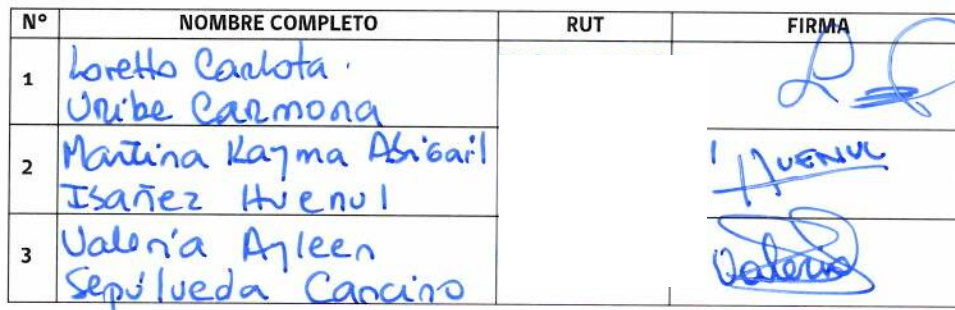 N° NOMBRE COMPLETO RUT FIRMA
1 Loretto Carlota
Uribe Carmona
2 Martina Rayma Abigail
Ibañez Huenul HUENUL
3 Valeria Ayleen
Sepúlveda Cancino Valeria